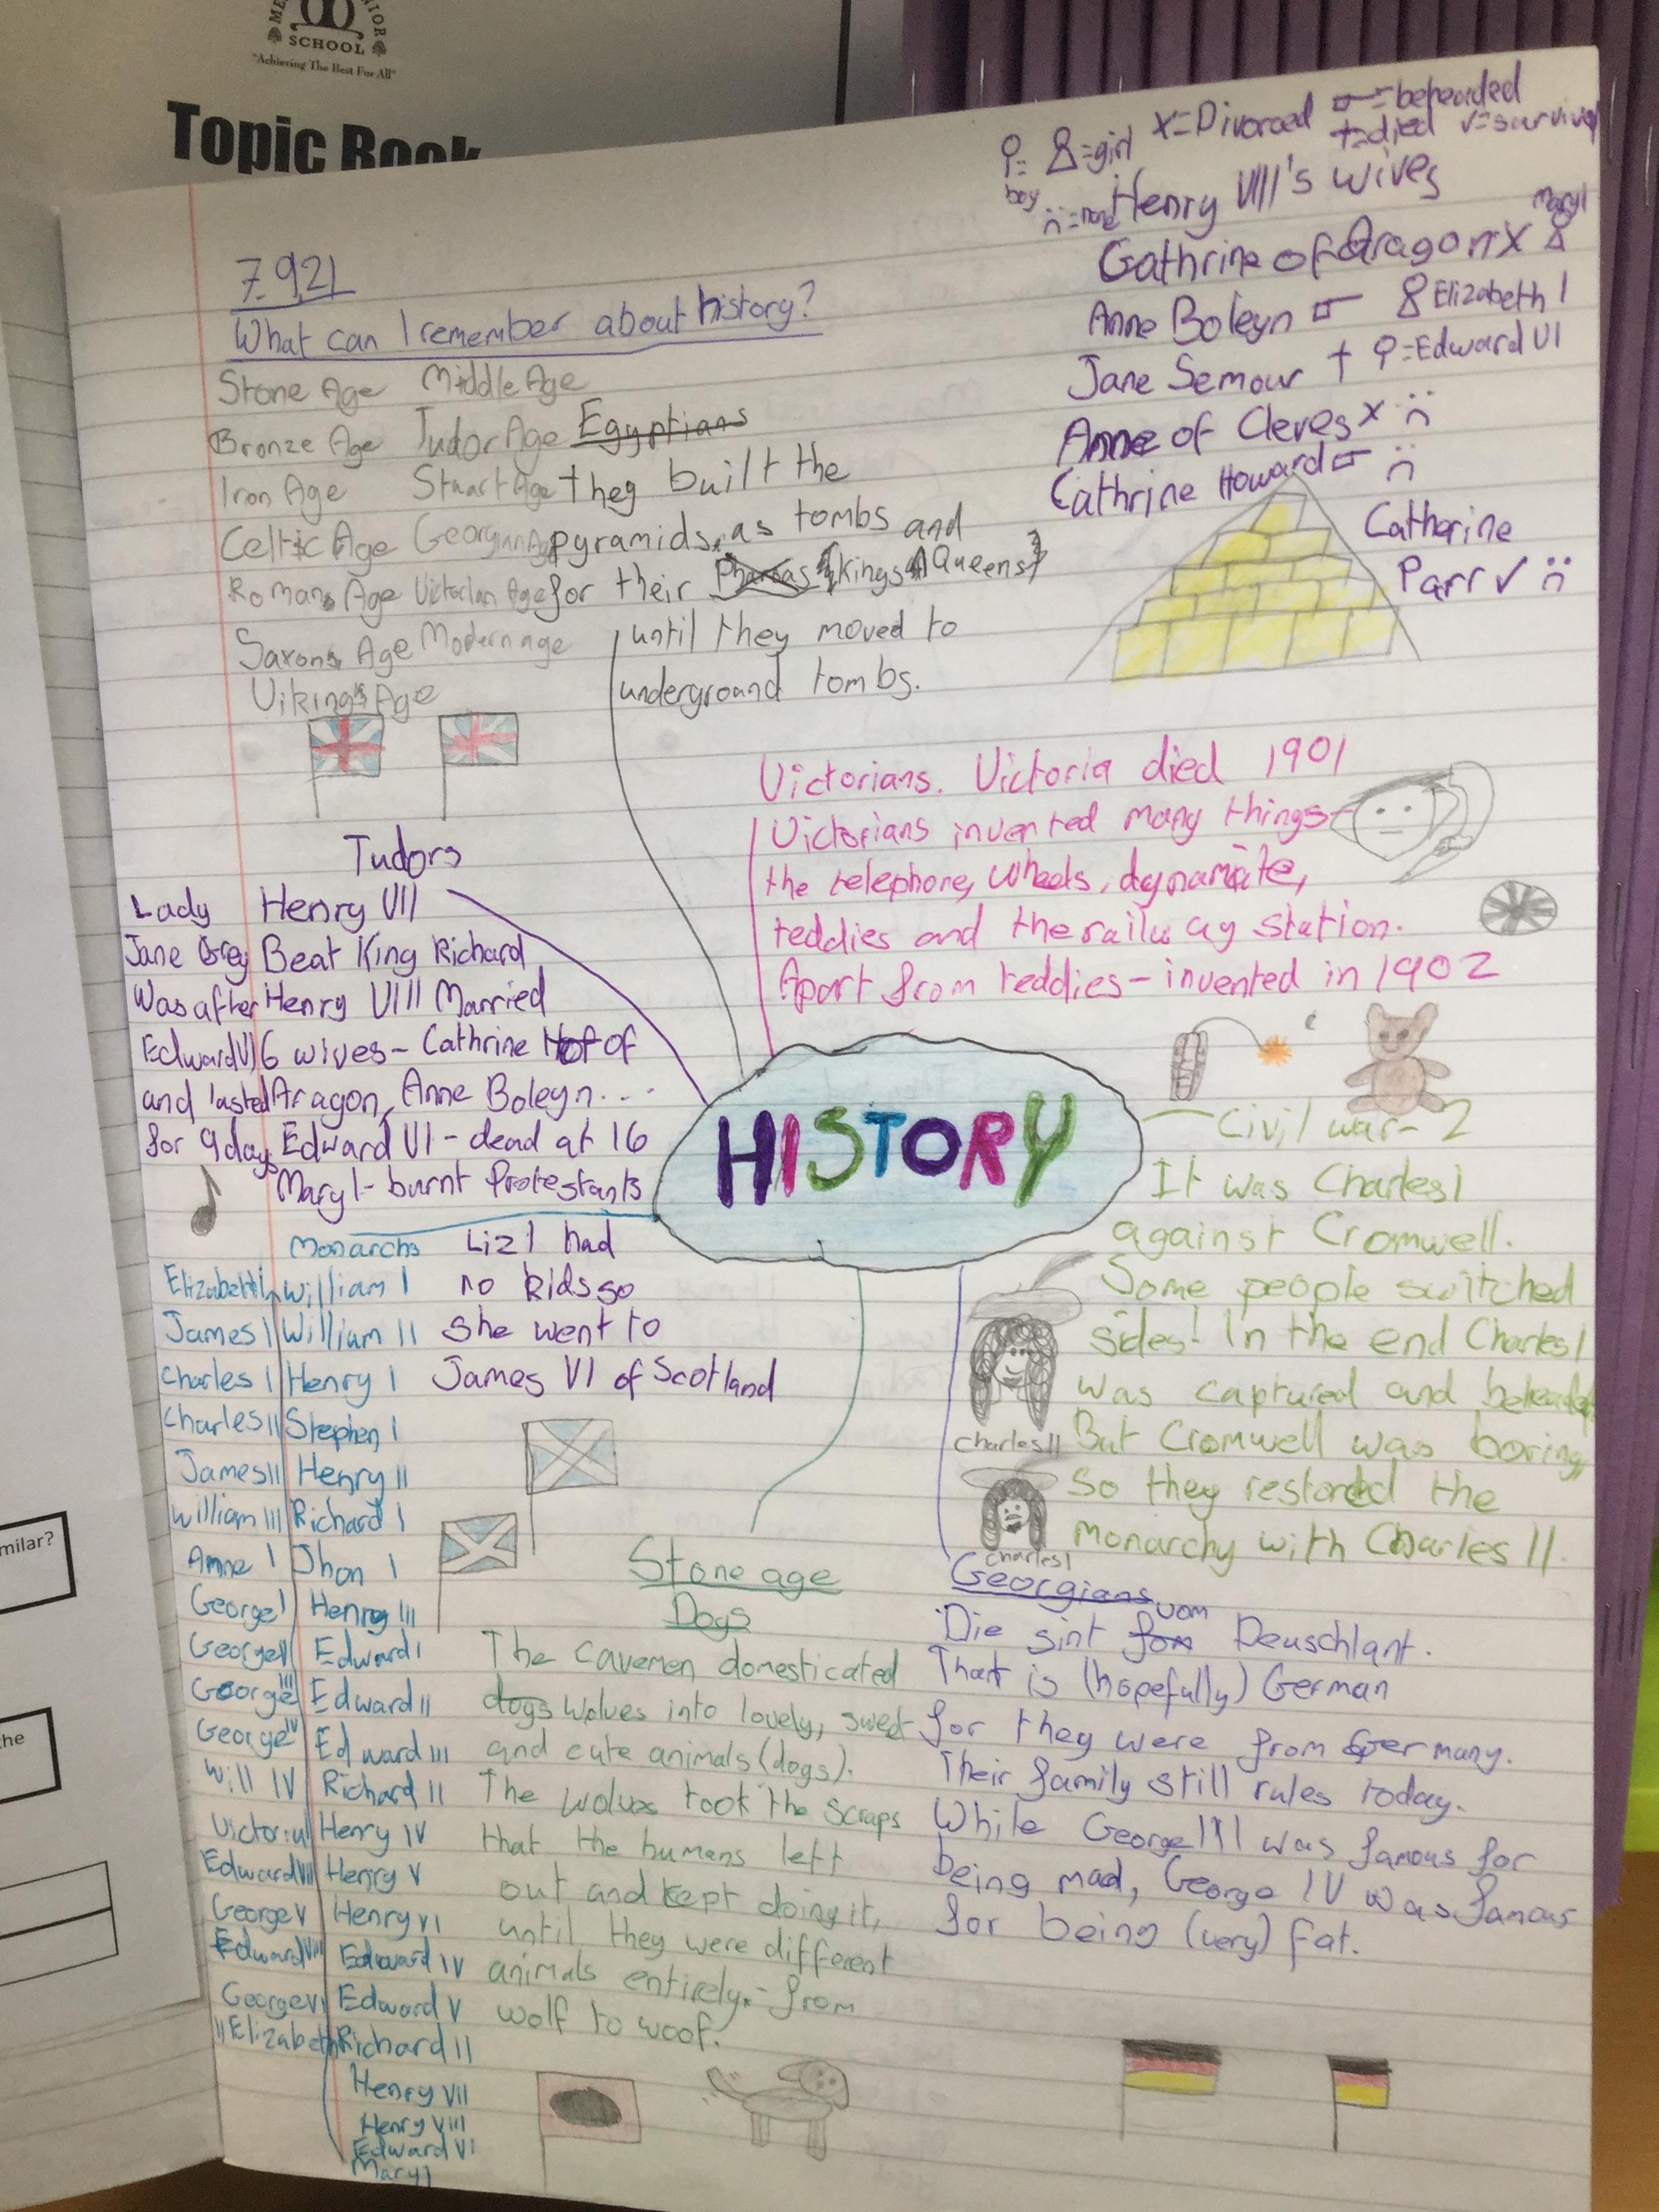 SCHOOL
"Achieving The Best For All"
Topic Book
♀= boy
=girl
x=Divorced
=beheaded
†=died
✓=survived
=none
Henry VIII's wives
Cathrine of Aragon x Mary I
Anne Boleyn Elizabeth I
Jane Semour † =Edward VI
Anne of Cleves x
Cathrine Howard
Catherine
Parr ✓
7.9.21
What can I remember about history?
Stone Age
Bronze Age
Iron Age
Celtic Age
Romans Age
Saxons Age
Vikings Age
Middle Age
Tudor Age
Stuart Age
Georgian Age
Victorian Age
Modern age
Egyptians
they built the
pyramids as tombs and
for their Pharoas (kings Queens)
until they moved to
underground tombs.
Victorians. Victoria died 1901
Victorians invented many things-
the telephone, wheels, dynamite,
teddies and the railway station.
Apart from teddies - invented in 1902
Tudors
Lady
Jane Grey
Was after
Edward VI
and lasted
for 9 days
Henry VII
Beat King Richard
Henry VIII Married
6 wives - Cathrine of
Aragon, Anne Boleyn...
Edward VI - dead at 16
Mary I - burnt Protestants
Liz I had
no kids so
she went to
James VI of Scotland
HISTORY
Civil war - 2
It was Charles I
against Cromwell.
Some people switched
sides! In the end Charles I
was captured and beheaded
But Cromwell was boring,
so they restored the
monarchy with Charles II.
Charles II
Charles I
Monarchs
William I
William II
Henry I
Stephen I
Henry II
Richard I
Jhon I
Henry III
Edward I
Edward II
Edward III
Richard II
Henry IV
Henry V
Henry VI
Edward IV
Edward V
Richard II
Henry VII
Henry VIII
Edward VI
Mary I
Elizabeth I
James I
Charles I
Charles II
James II
William III
Anne I
George I
George II
George III
George IV
Will IV
Victoria I
Edward VII
George V
Edward VIII
George VI
II Elizabeth
Stone age
Dogs
The cavemen domesticated
dogs wolves into lovely, sweet
and cute animals (dogs).
The wolves took the scraps
that the humans left
out and kept doing it,
until they were different
animals entirely - from
wolf to woof.
Georgians
Die sint fom vom Deuschlant.
That is (hopefully) German
for they were from Germany.
Their family still rules today.
While George III was famous for
being mad, George IV was famous
for being (very) fat.
milar?
the